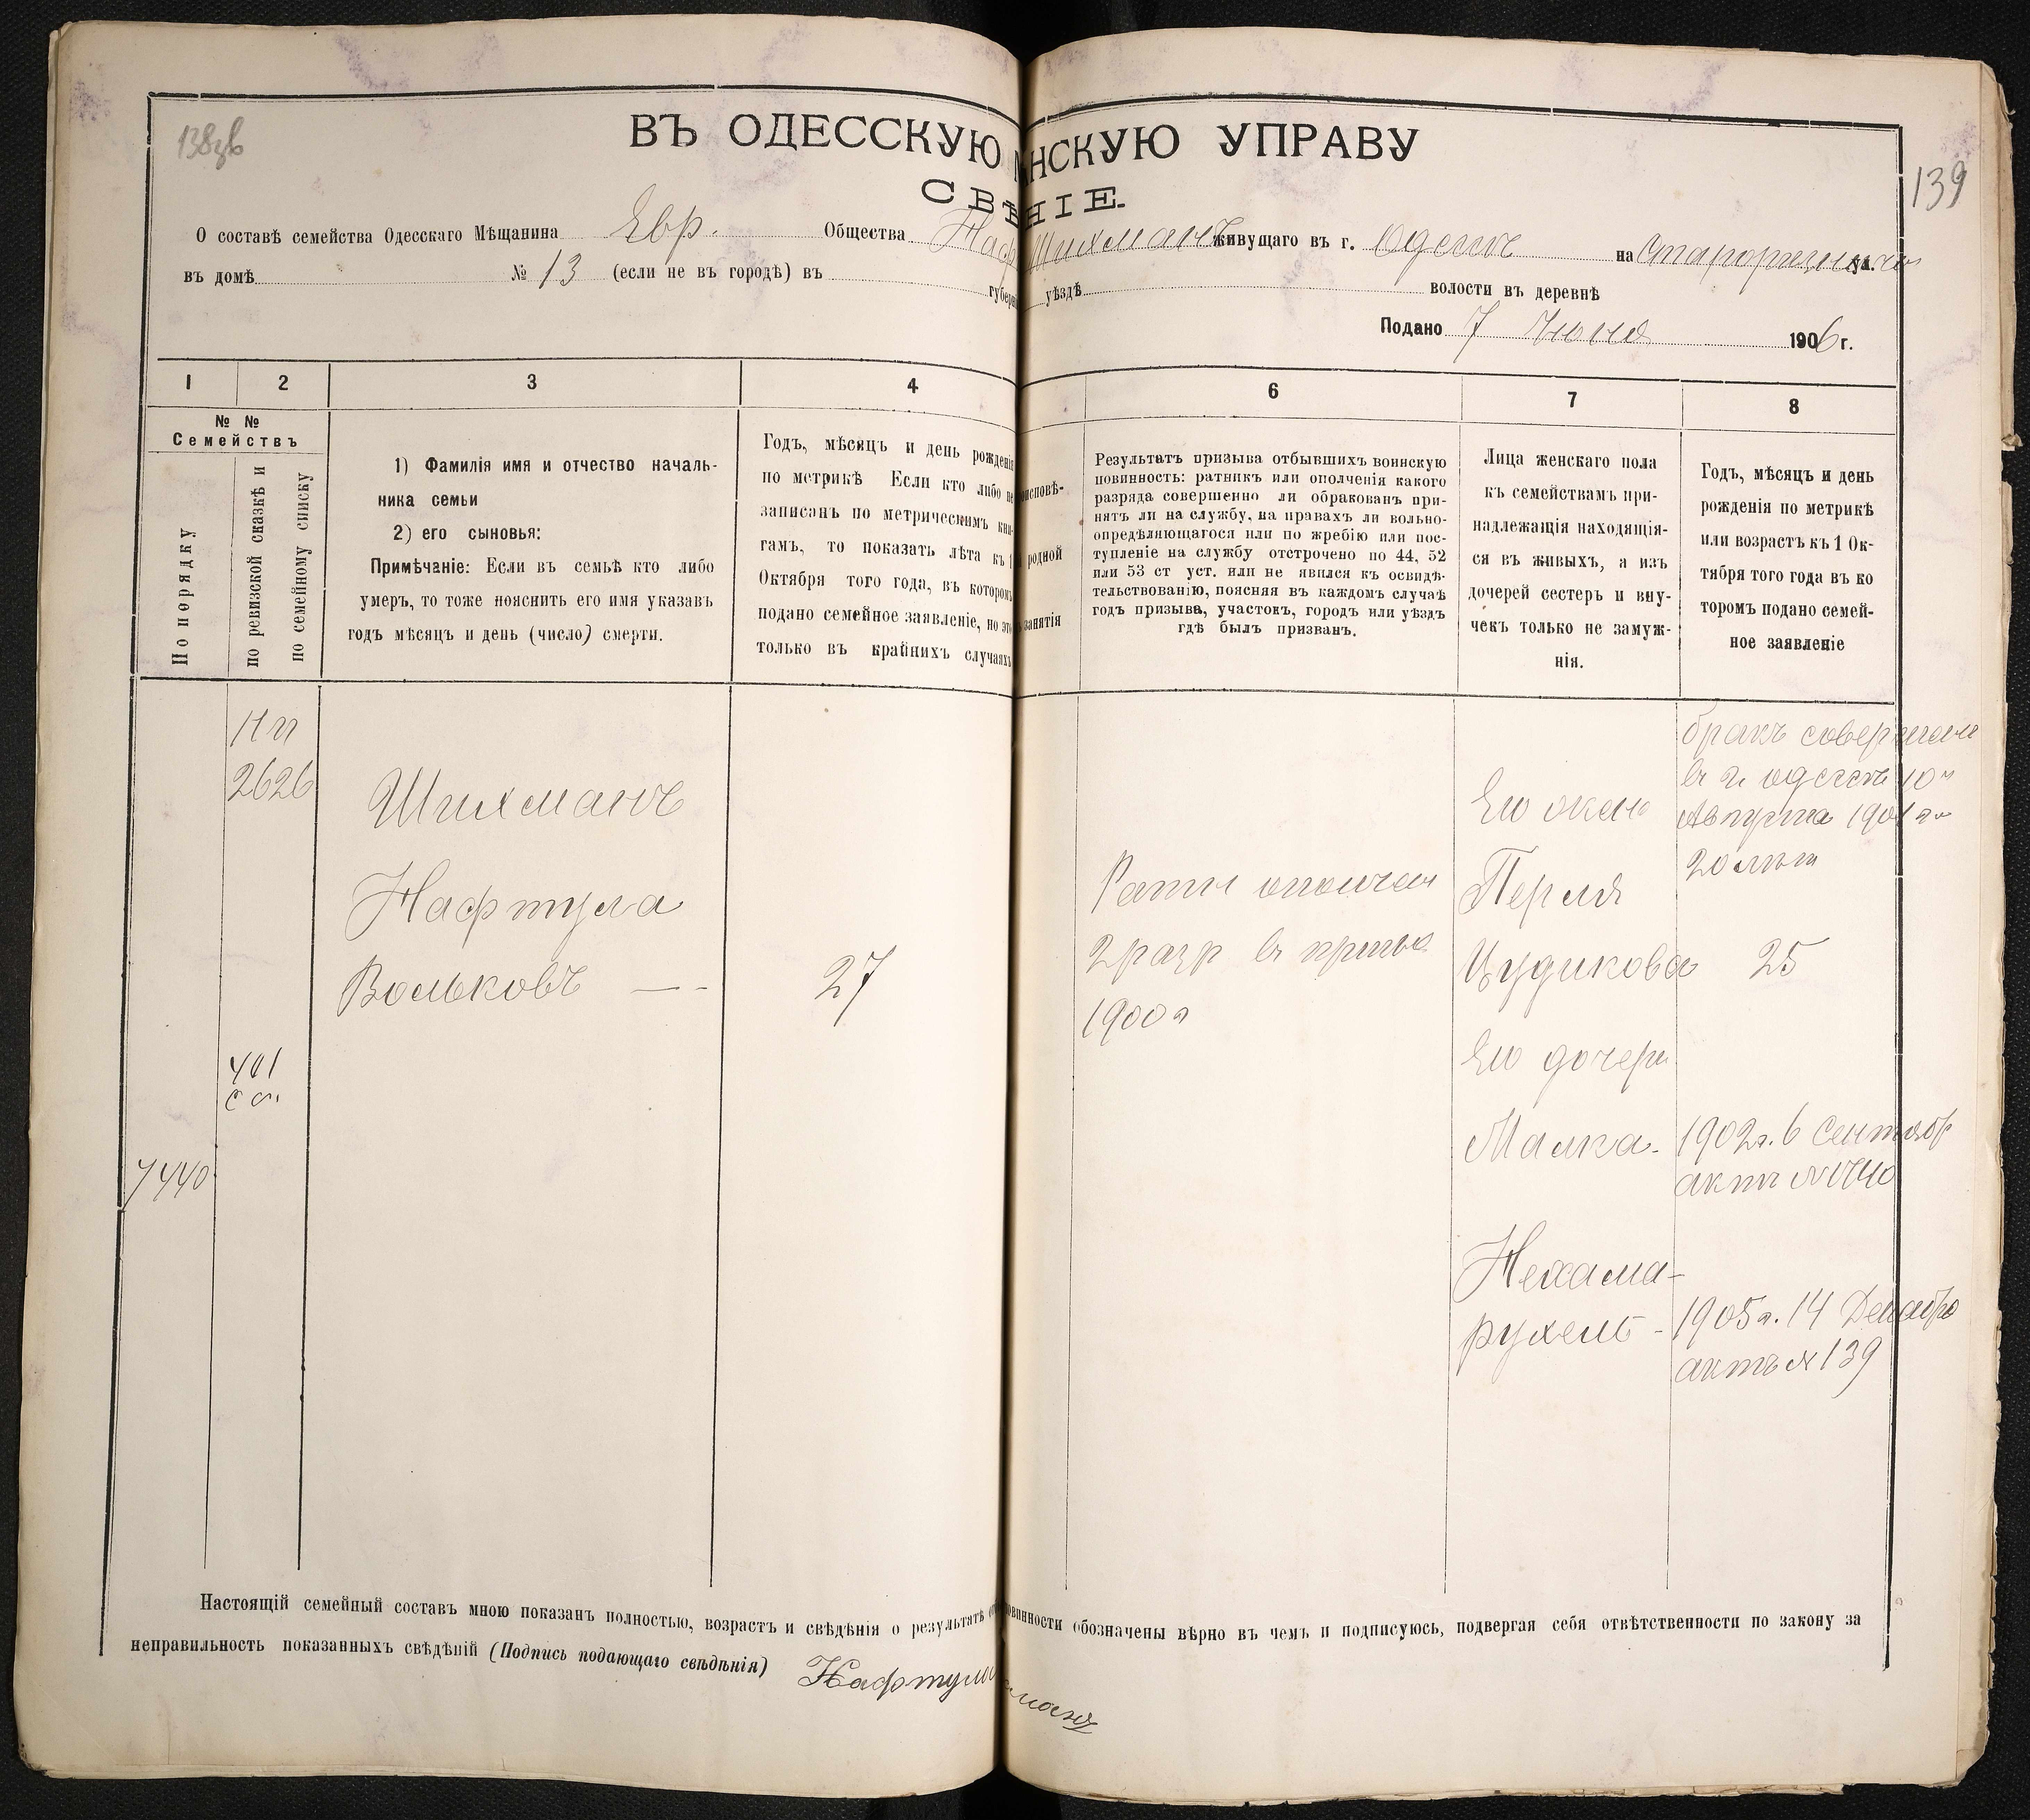 138зв
139
ВЪ ОДЕССКУЮ НСКУЮ УПРАВУ
СВѢ НІЕ.
О составѣ семейства Одесскаго Мѣщанина Евр. Общества Наф Шихманъ живущаго въ г. Одессѣ на Старорезничн ул.
въ домѣ № 13 (если не въ городѣ) въ губерн уѣздѣ волости въ деревнѣ
Подано 7 Июня 1906 г.
1 2 3 4 6 7 8
№ №
Семействъ
По порядку
по ревизской сказкѣ и
по семейному списку
1) Фамилія имя и отчество началь-
ника семьи
2) его сыновья:
Примѣчаніе: Если въ семьѣ кто либо
умеръ, то тоже пояснить его имя указавъ
годъ мѣсяцъ и день (число) смерти.
Годъ, мѣсяцъ и день рожденія
по метрикѣ Если кто либо не
записанъ по метрическимъ кни-
гамъ, то показать лѣта къ 1
Октября того года, въ которомъ
подано семейное заявленіе, но это
только въ крайнихъ случаяхъ
исповѣ-
родной
занятія
Результатъ призыва отбывшихъ воинскую
повинность: ратникъ или ополченія какого
разряда совершенно ли обракованъ при-
нятъ ли на службу, на правахъ ли вольно-
опредѣляющагося или по жребію или пос-
тупленіе на службу отстрочено по 44, 52
или 53 ст уст. или не явился къ освидѣ-
тельствованію, поясняя въ каждомъ случаѣ
годъ призыва, участокъ, городъ или уѣздъ
гдѣ былъ призванъ.
Лица женскаго пола
къ семействамъ при-
надлежащія находящія-
ся въ живыхъ, а изъ
дочерей сестеръ и вну-
чекъ только не замуж-
нія.
Годъ, мѣсяцъ и день
рожденія по метрикѣ
или возрастъ къ 1 Ок-
тября того года въ ко
торомъ подано семей-
ное заявленіе
2626
Шихманъ
Нафтула
Вольковъ — -
27
401
7440
Ратн ополчен
2 разр въ призыв
1900 г
Его жена
Перля
Цудикова
25
бракъ совершен
в г. Одессѣ 10го
Августа 1901 г.
20 лѣт
Его дочери
Малка -
1902 г. 6 Сентябр
актъ № 1740
Нехама-
рухель -
1905 г. 14 Декабр
актъ № 139
Настоящій семейный составъ мною показанъ полностью, возрастъ и свѣдѣнія о результатѣ от овинности обозначены вѣрно въ чемъ и подписуюсь, подвергая себя отвѣтственности по закону за
неправильность показанныхъ свѣдѣній (Подпись подающаго свѣдѣнія) Нафтула манъ